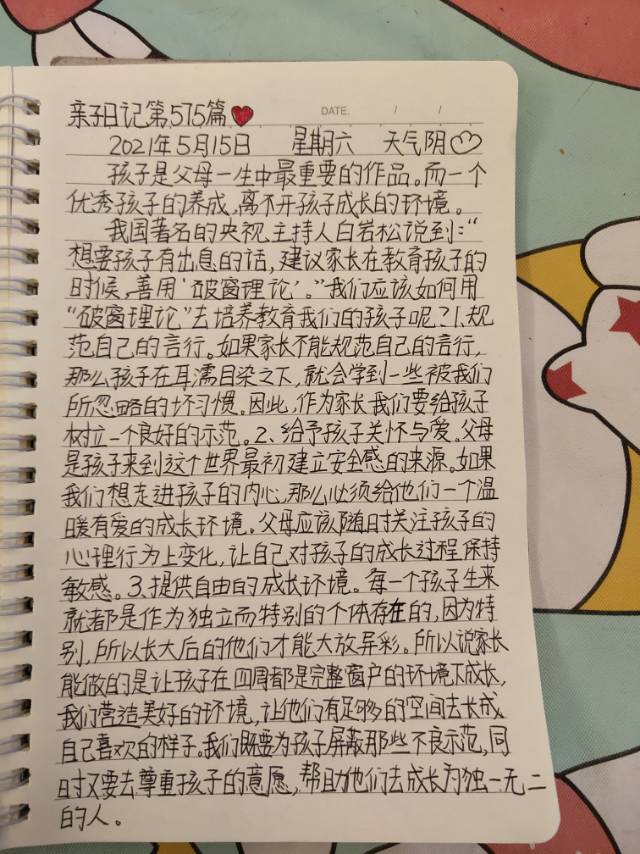 亲子日记第575篇
DATE. / /
2021年5月15日 星期六 天气阴
孩子是父母一生中最重要的作品。而一个
优秀孩子的养成,离不开孩子成长的环境。
我国著名的央视主持人白岩松说到:“
想要孩子有出息的话,建议家长在教育孩子的
时候,善用‘破窗理论’。”我们应该如何用
“破窗理论”去培养教育我们的孩子呢?1.规
范自己的言行。如果家长不能规范自己的言行,
那么孩子在耳濡目染之下,就会学到一些被我们
所忽略的坏习惯。因此,作为家长我们要给孩子
树立一个良好的示范。2、给予孩子关怀与爱。父母
是孩子来到这个世界最初建立安全感的来源。如果
我们想走进孩子的内心,那么必须给他们一个温
暖有爱的成长环境。父母应该随时关注孩子的
心理行为上变化,让自己对孩子的成长过程保持
敏感。3.提供自由的成长环境。每一个孩子生来
就都是作为独立而特别的个体存在的,因为特
别,所以长大后的他们才能大放异彩。所以说家长
能做的是让孩子在四周都是完整窗户的环境下成长,
我们营造美好的环境,让他们有足够多的空间去长成
自己喜欢的样子。我们既要为孩子屏蔽那些不良示范,同
时又要去尊重孩子的意愿,帮助他们去成长为独一无二
的人。